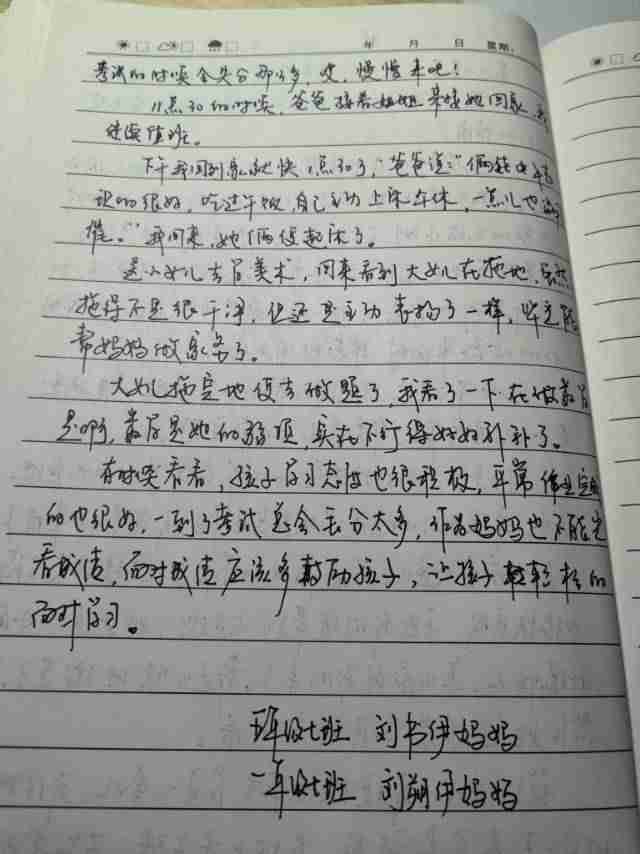 年 月 日 星期:
考试的时候会失分那么多,哎,慢慢来吧!
11点30的时候,爸爸接着姐姐 她回家,
续值班。
下午我回到家就快1点30了,“爸爸说:”俩娃中午
的很好,吃过午饭,自己主动上床午休,一点儿也
催。”我回来,她俩便起床了。
送小女儿去学美术,回来看到大女儿在拖地,虽然
拖得不是很干净,但还是主动表扬了一样,毕竟能
帮妈妈做家务了。
大女儿拖完地便去做题了,我看了一下在做数学
是啊,数学是她的弱项,实在不行得好好补补了。
有时候看看,孩子学习态度也很积极,平常作业完成
的也很好,一到了考试总会丢分太多,作为妈妈也不能光
看成绩,面对成绩应该多鼓励孩子,让孩子轻轻松的
面对学习。
五年级七班 刘书伊妈妈
一年级七班 刘朔伊妈妈